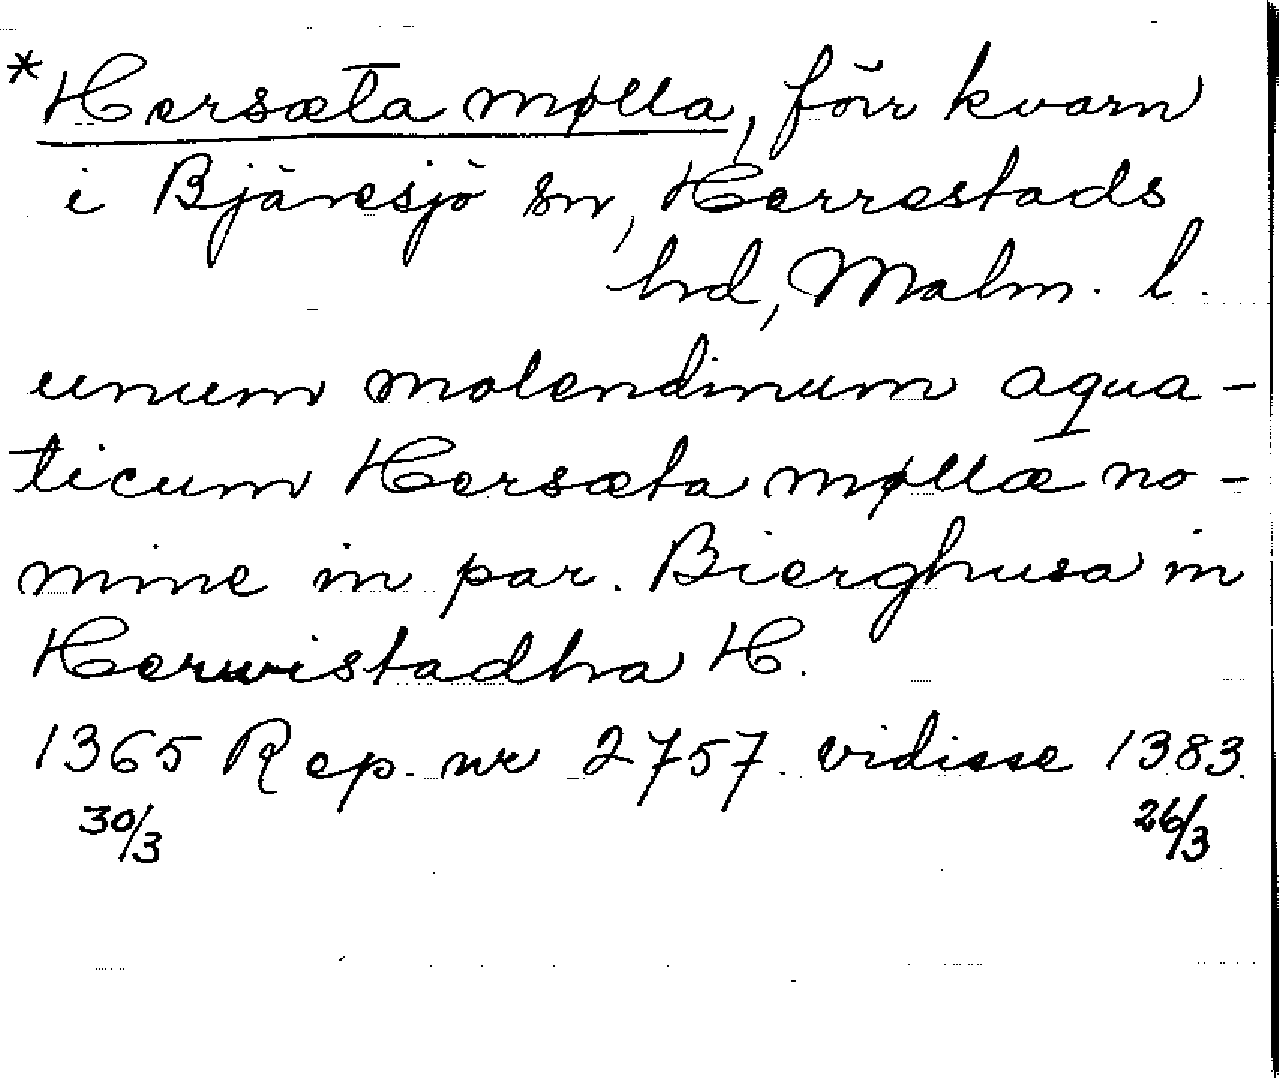 *Hersæta mølla, förr kvarn
i Bjäresjö sn, Herrestads
hd, Malm. l.
unum molendinum aqua-
ticum Hersæta møllæ no-
mine in par. Bierghusa in
Herwistadha H.
1365 Rep. nr 2757 vidisse 1383
30/3 26/3